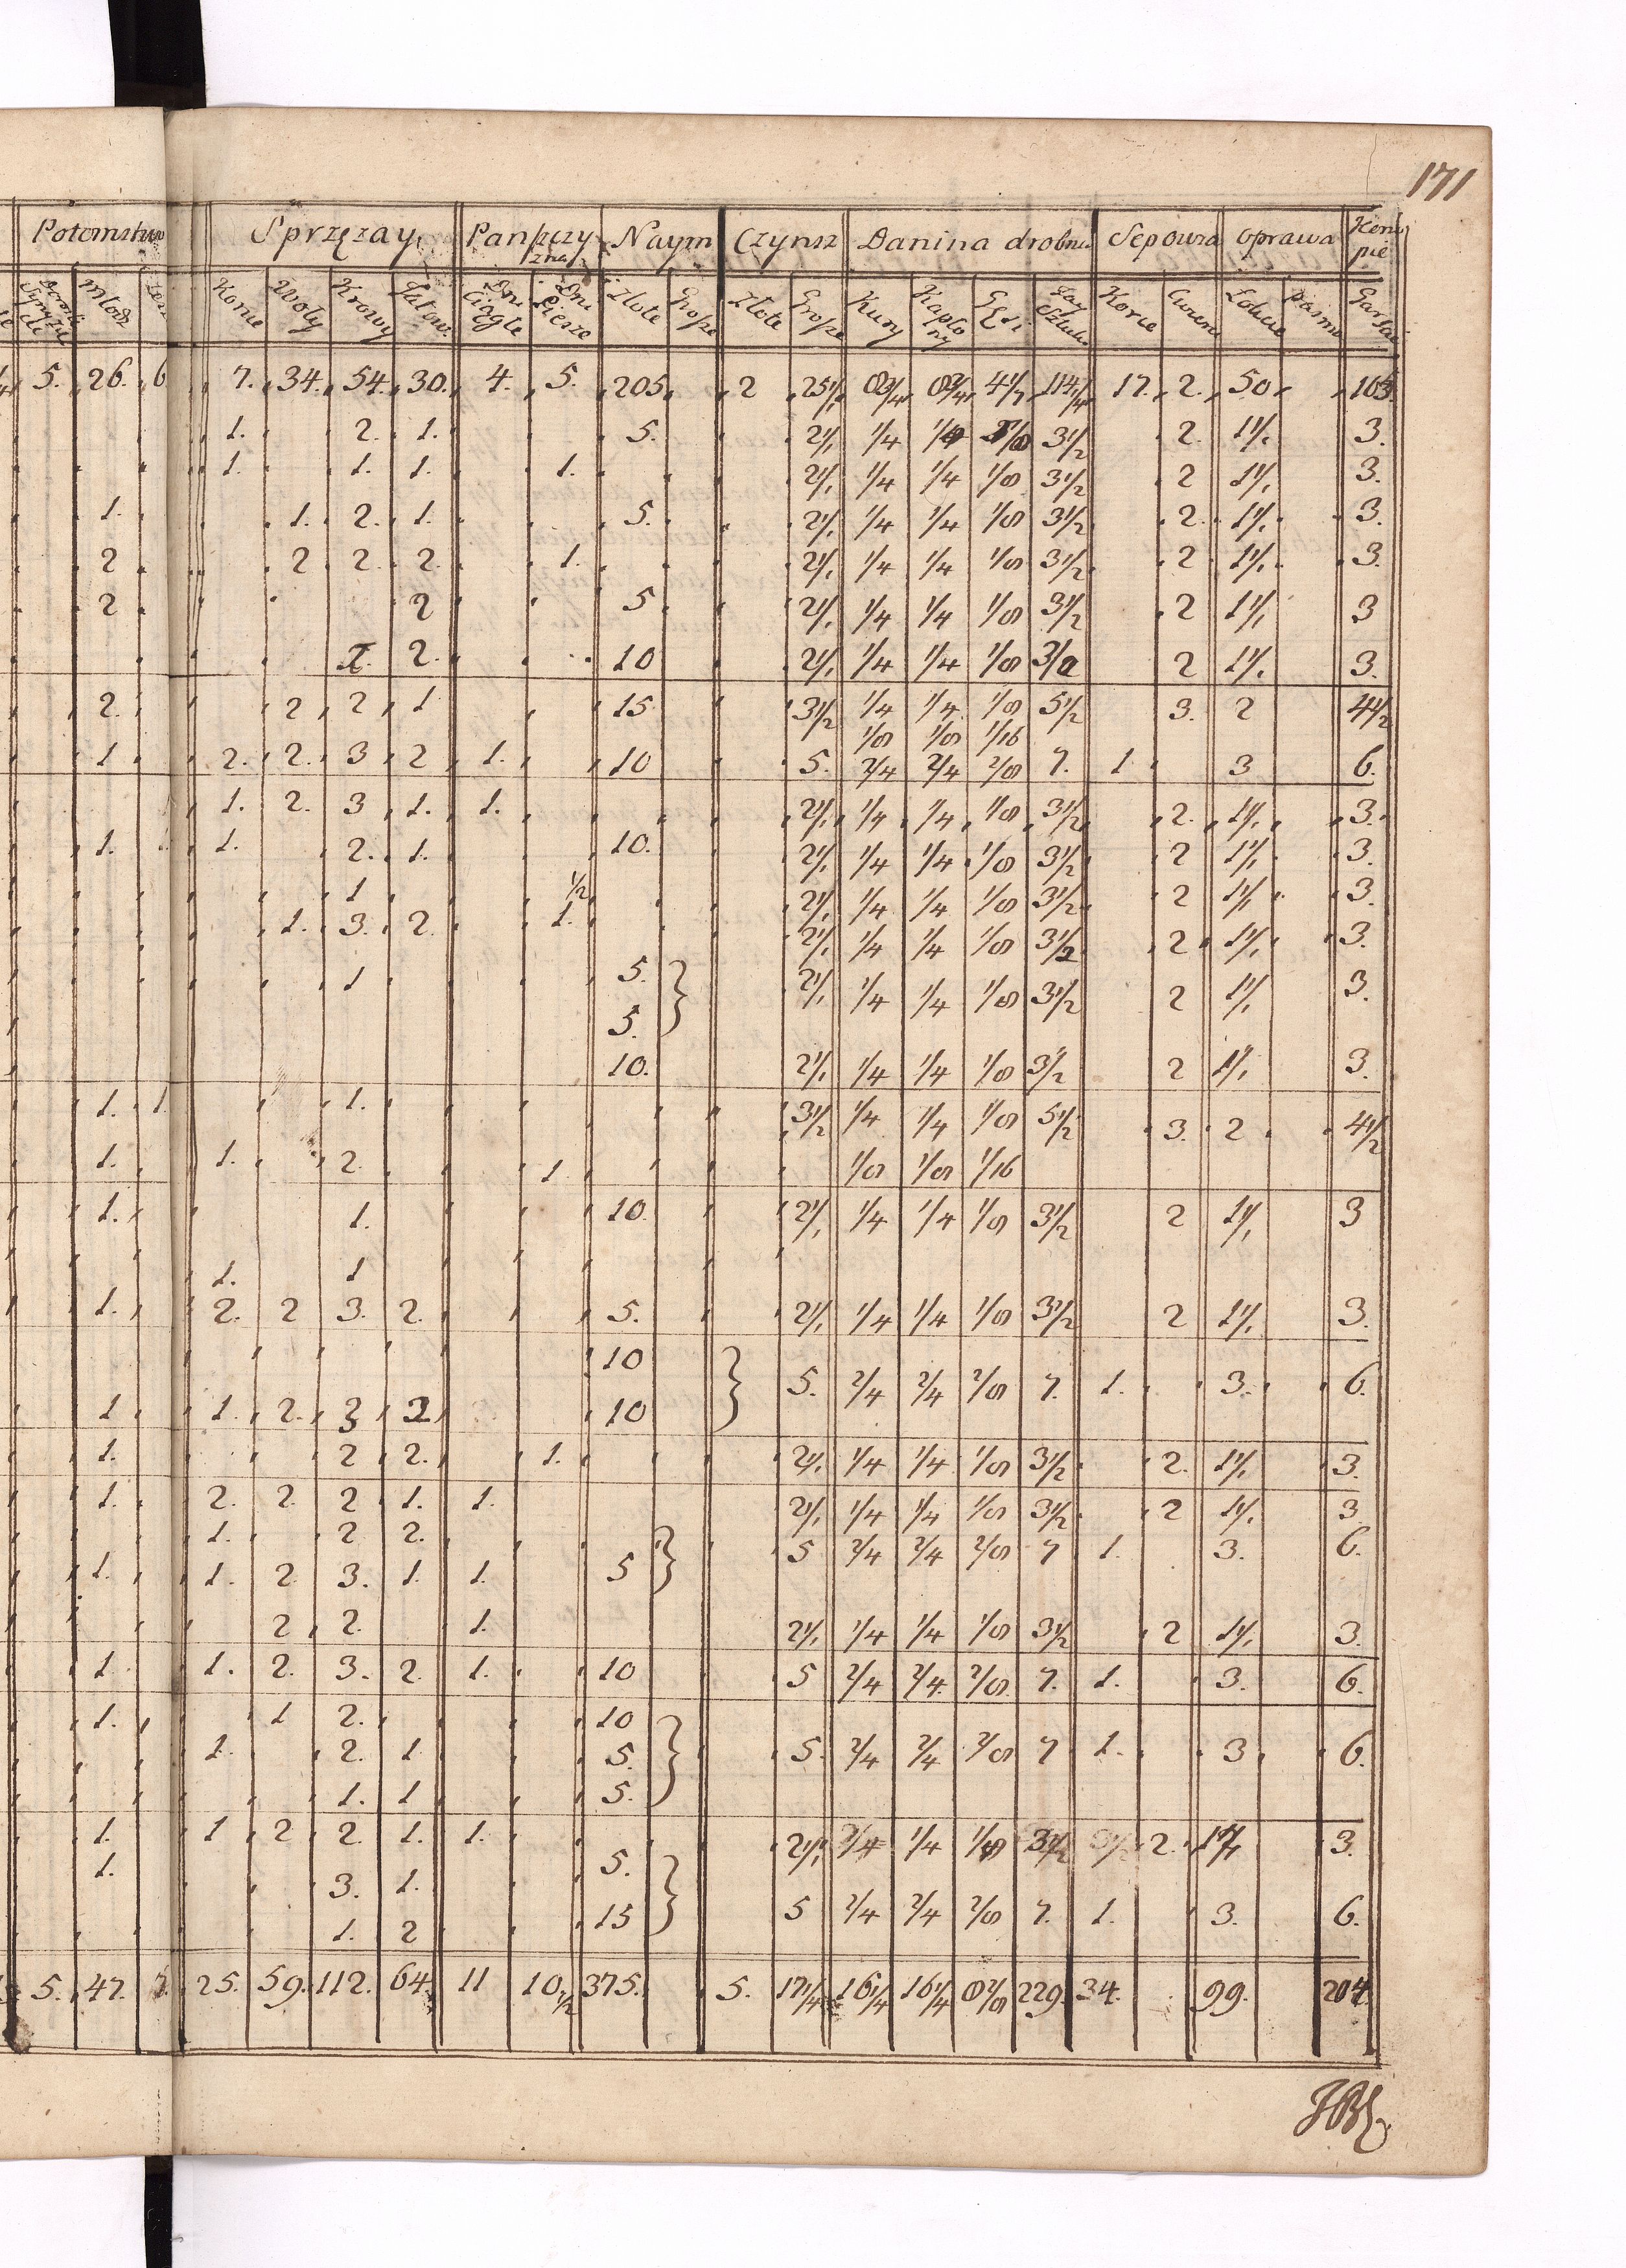 171
Potomstwo Sprzężay Panszczyzna Naym Czynsz Danina drobna Sepowa Oprawa Kono pie
Młodz Konie Woły Krowy Jałow. Dni Ciągłe Dni Piesze Złote Grosze Złote Grosze Kury Kapłony Gęsi Jay Sztuk Korce Łokcie Pasma
5. 26. 6 7. 34. 54. 30. 4. 5. 205. 2 25 1/. 8 3/4 8 3/4 4 1/7 114 1/4 17. 2. 50 103.
1. 2. 1. 5. 2 1/. 1/4 1/4 1/8 3 1/2 2. 1 1/. 3.
1. 1. 1. 1. 2 1/. 1/4 1/4 1/8 3 1/2 2 1 1/. 3.
1. 1. 2. 1. 5. 2 1/. 1/4 1/4 1/8 3 1/2 2. 1 1/. 3.
2 2 2. 2. 1. 2 1/. 1/4 1/4 1/8 3 1/2 2 1 1/. 3.
2 2 5. 2 1/. 1/4 1/4 1/8 3 1/2 2 1 1/. 3
2. 10 2 1/. 1/4 1/4 1/8 3/2 2 1 1/. 3.
2. 2 2 1 15 3 1/2 1/4 1/4 1/8 5 1/2 3. 2 4 1/2
1/8 1/8 1/16
1. 2. 2. 3 2 1. 10 5. 2/4 2/4 2/8 7. 1 3 6.
1. 2. 3 1. 1. 2 1/. 1/4 1/4 1/8 3 1/2 2. 1 1/. 3.
1. 1. 2. 1. 10. 2 1/. 1/4 1/4 1/8 3 1/2 2 1 1/. 3.
1 1/2 2 1/. 1/4 1/4 1/8 3 1/2 2 1 1/. 3.
1. 3. 2. 1. 2 1/. 1/4 1/4 1/8 3 1/2 2 1 1/. 3.
1 5. 2 1/. 1/4 1/4 1/8 3 1/2 2 1 1/. 3.
5.
10. 2 1/. 1/4 1/4 1/8 3 1/2 2 1 1/. 3.
1. 1. 1. 3 1/2 1/4 1/4 1/8 5 1/2 3. 2 4 1/2
1. 1. 2. 1 1/8 1/8 1/16
1. 1. 10. 2 1/. 1/4 1/4 1/8 3 1/2 2 1 1/. 3
1. 1
1. 2. 2 3. 2. 5. 2 1/. 1/4 1/4 1/8 3 1/2 2 1 1/. 3.
10
5. 2/4 2/4 2/8 7. 1. 3. 6.
1 1. 2. 3 2 10
1. 2 2. 1. 2 1/. 1/4 1/4 1/8 3 1/2 2. 1 1/. 3.
1. 2. 2. 2 1. 1. 2 1/. 1/4 1/4 1/8 3 1/2 2 1 1/. 3
1. 2 2. 5 2/4 2/4 2/8 7 1. 3. 6.
1. 1. 2 3. 1 1. 5
2 2. 1. 2 1/. 1/4 1/4 1/8 3 1/2 2 1 1/. 3.
1. 1. 2. 3. 2. 1. 10 5 2/4 2/4 2/8 7. 1. 3. 6.
1. 1 2. 10
1. 2. 1 5. 5. 2/4 2/4 2/8 7 1. 3 6.
1. 1 5.
1. 1 2 2. 1. 1. 2 1/. 1/4 1/4 1/8 3 1/2 2. 3.
1. 5.
3. 1.
15 5 2/4 2/4 2/8 7. 1. 3. 6.
1. 2
5. 47. 25. 59. 112. 64. 11 10 1/2 375. 5. 17 1/4 16 1/4 16 1/4 8 2/8 229. 34. 99. 204.